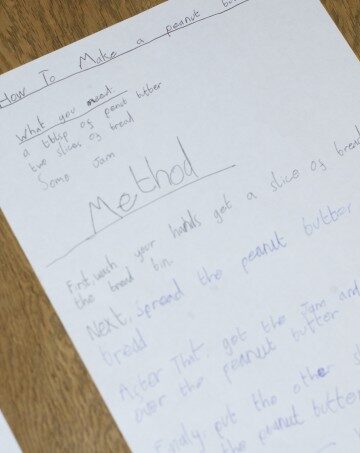 How To Make a peanut
What you need.
a tblsp of penut butter
two slices of bread
Some Jam
Method
First, wash your hands get a slice of bread
the bread bin.
Next, spread the peanut butter
bread
After That, get the Jam and
over the peanut butter
Finaly, put the other
the peanut butter